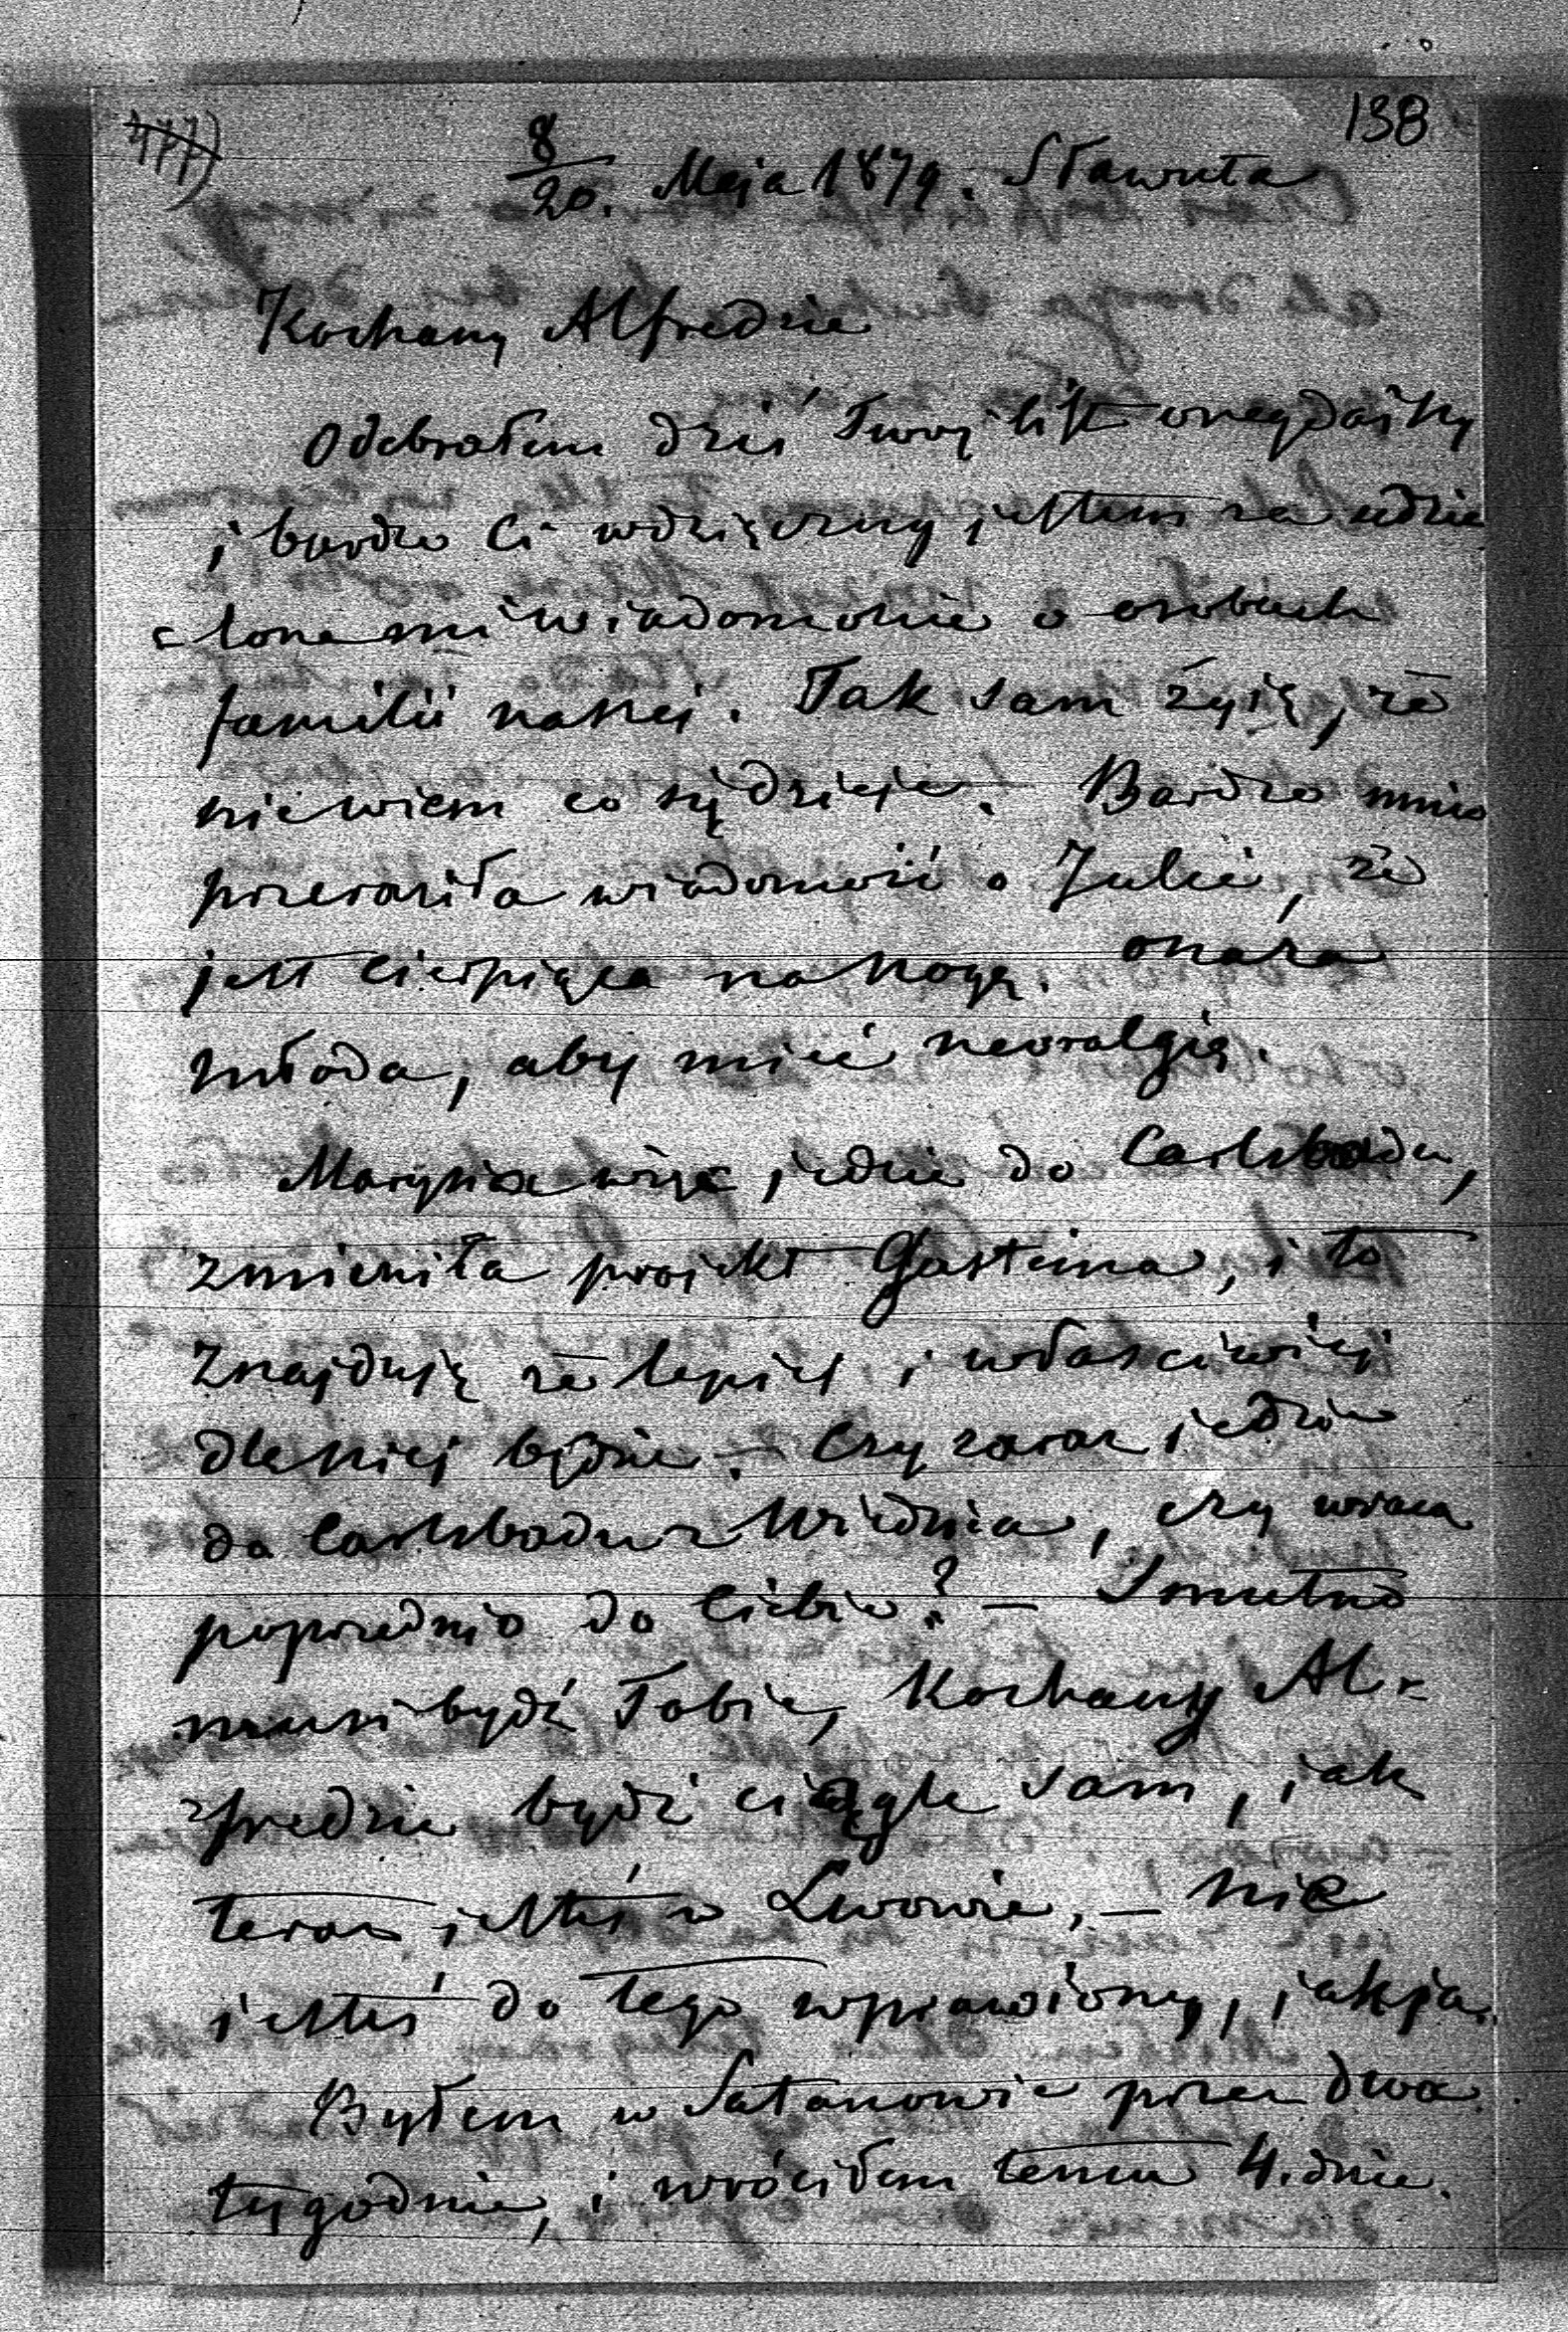 177) 138
8/20. Maja 1879. Sławuta
Kochany Alfredzie
Odebrałem dziś Twoj list onegdajszy
i bardzo Ci wdzięczny jestem za udzie
lone mi wiadomoście o osobach
familii naszej. Tak sam żyię, że
niewiem co się dzieje. Bardzo mnie
przeraziła wiadomość o Julii, że
jest cierpiąca na nogę. ona za
młoda, aby mieć nevralgię.
Marysia więc jedzie do Carlsbadu,
zmieniła projekt Gasteina, i to
znajduję że lepiej i właściwiej
dla niej będzie. – Czy zaraz jedzie
do Carlsbadu z Wiednia, czy wraca
poprzednio do Ciebie? – Smutno
musi bydź Tobie, Kochany Al-
fredzie bydź ciągle sam, jak
teraz jesteś w Lwowie, – nie
jesteś do tego wprawiony, jak ja.
Byłem w Satanowie przez dwa
tygodnie, i wróciłem temu 4. dnie.